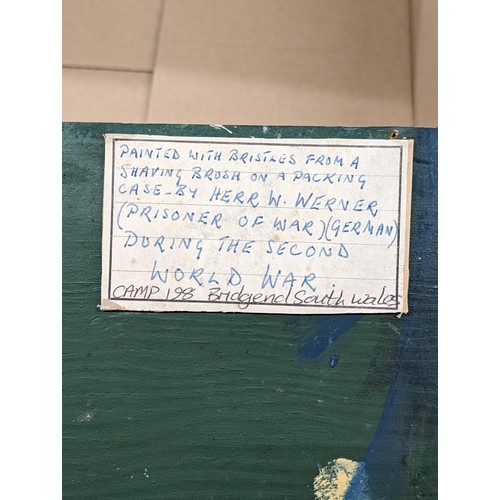 PAINTED WITH BRISTLES FROM A
SHAVING BRUSH ON A PACKING
CASE-BY HERR W. WERNER
(PRISONER OF WAR)(GERMAN)
DURING THE SECOND
WORLD WAR
CAMP 198 Bridgend South Wales